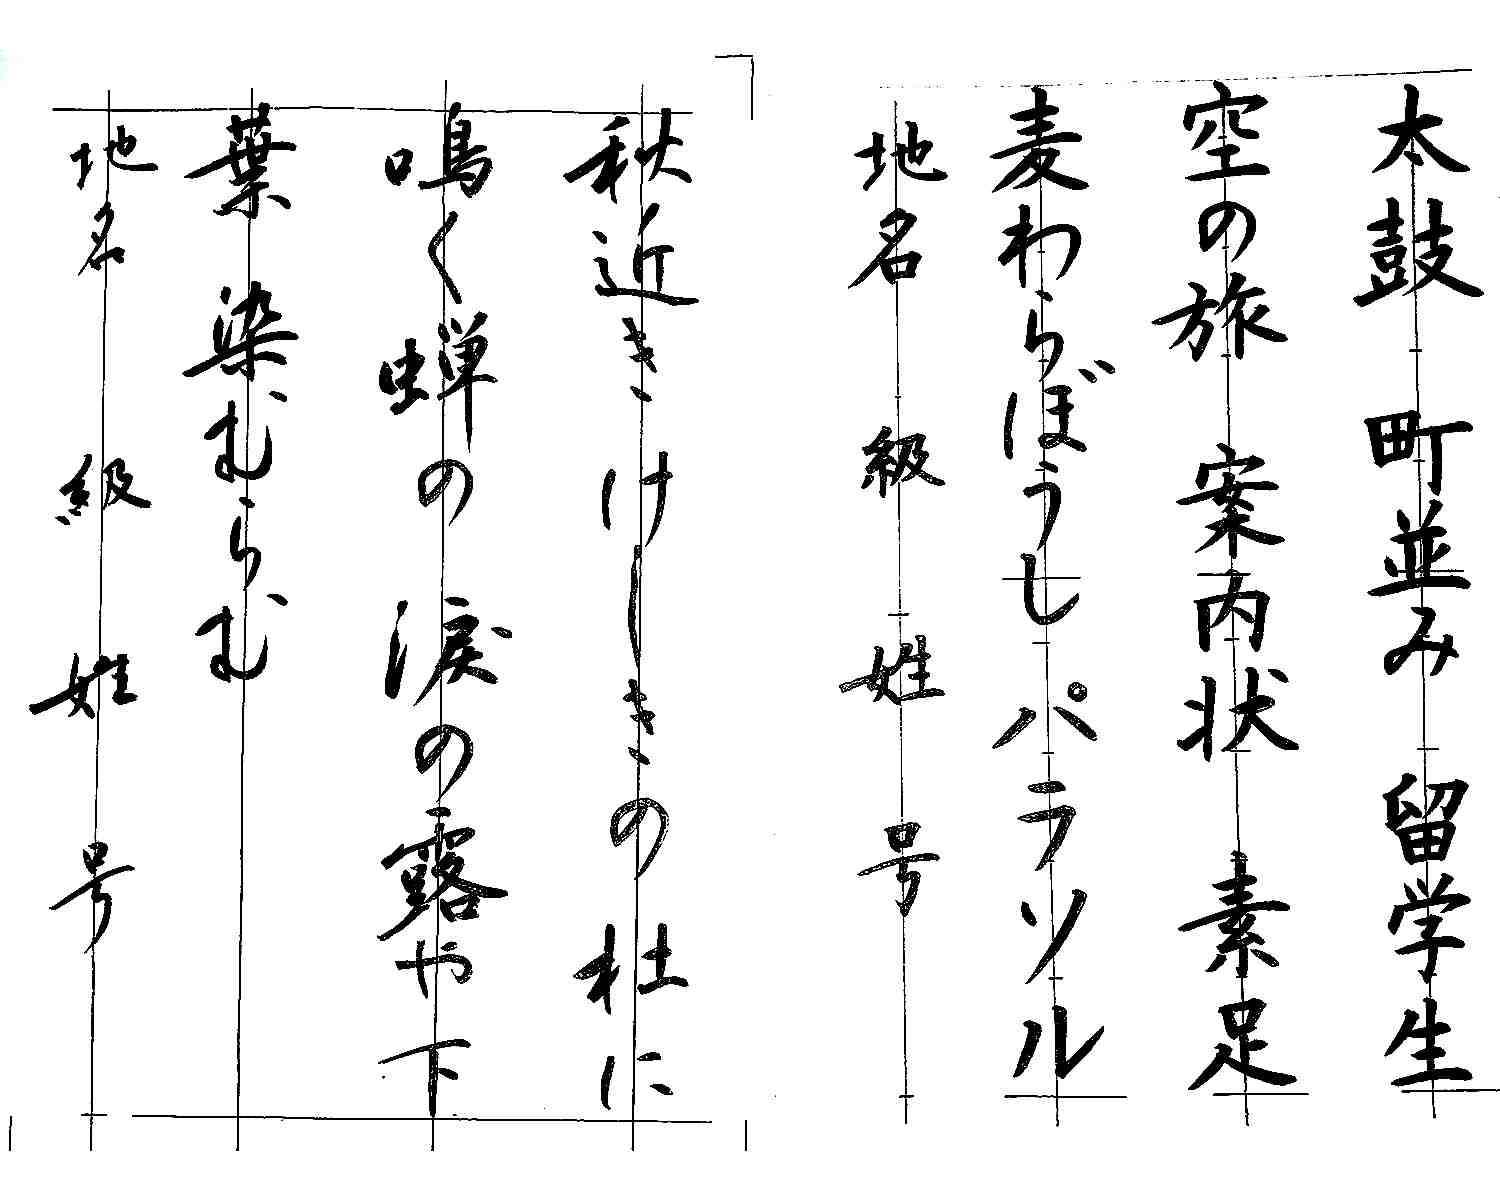 太鼓 町並み 留学生
空の旅 案内状 素足
麦わらぼうし パラソル
地名 級 姓 号
秋近き けしきの杜に
鳴く蝉の 涙の露や下
葉 染むらむ
地名 級 姓 号